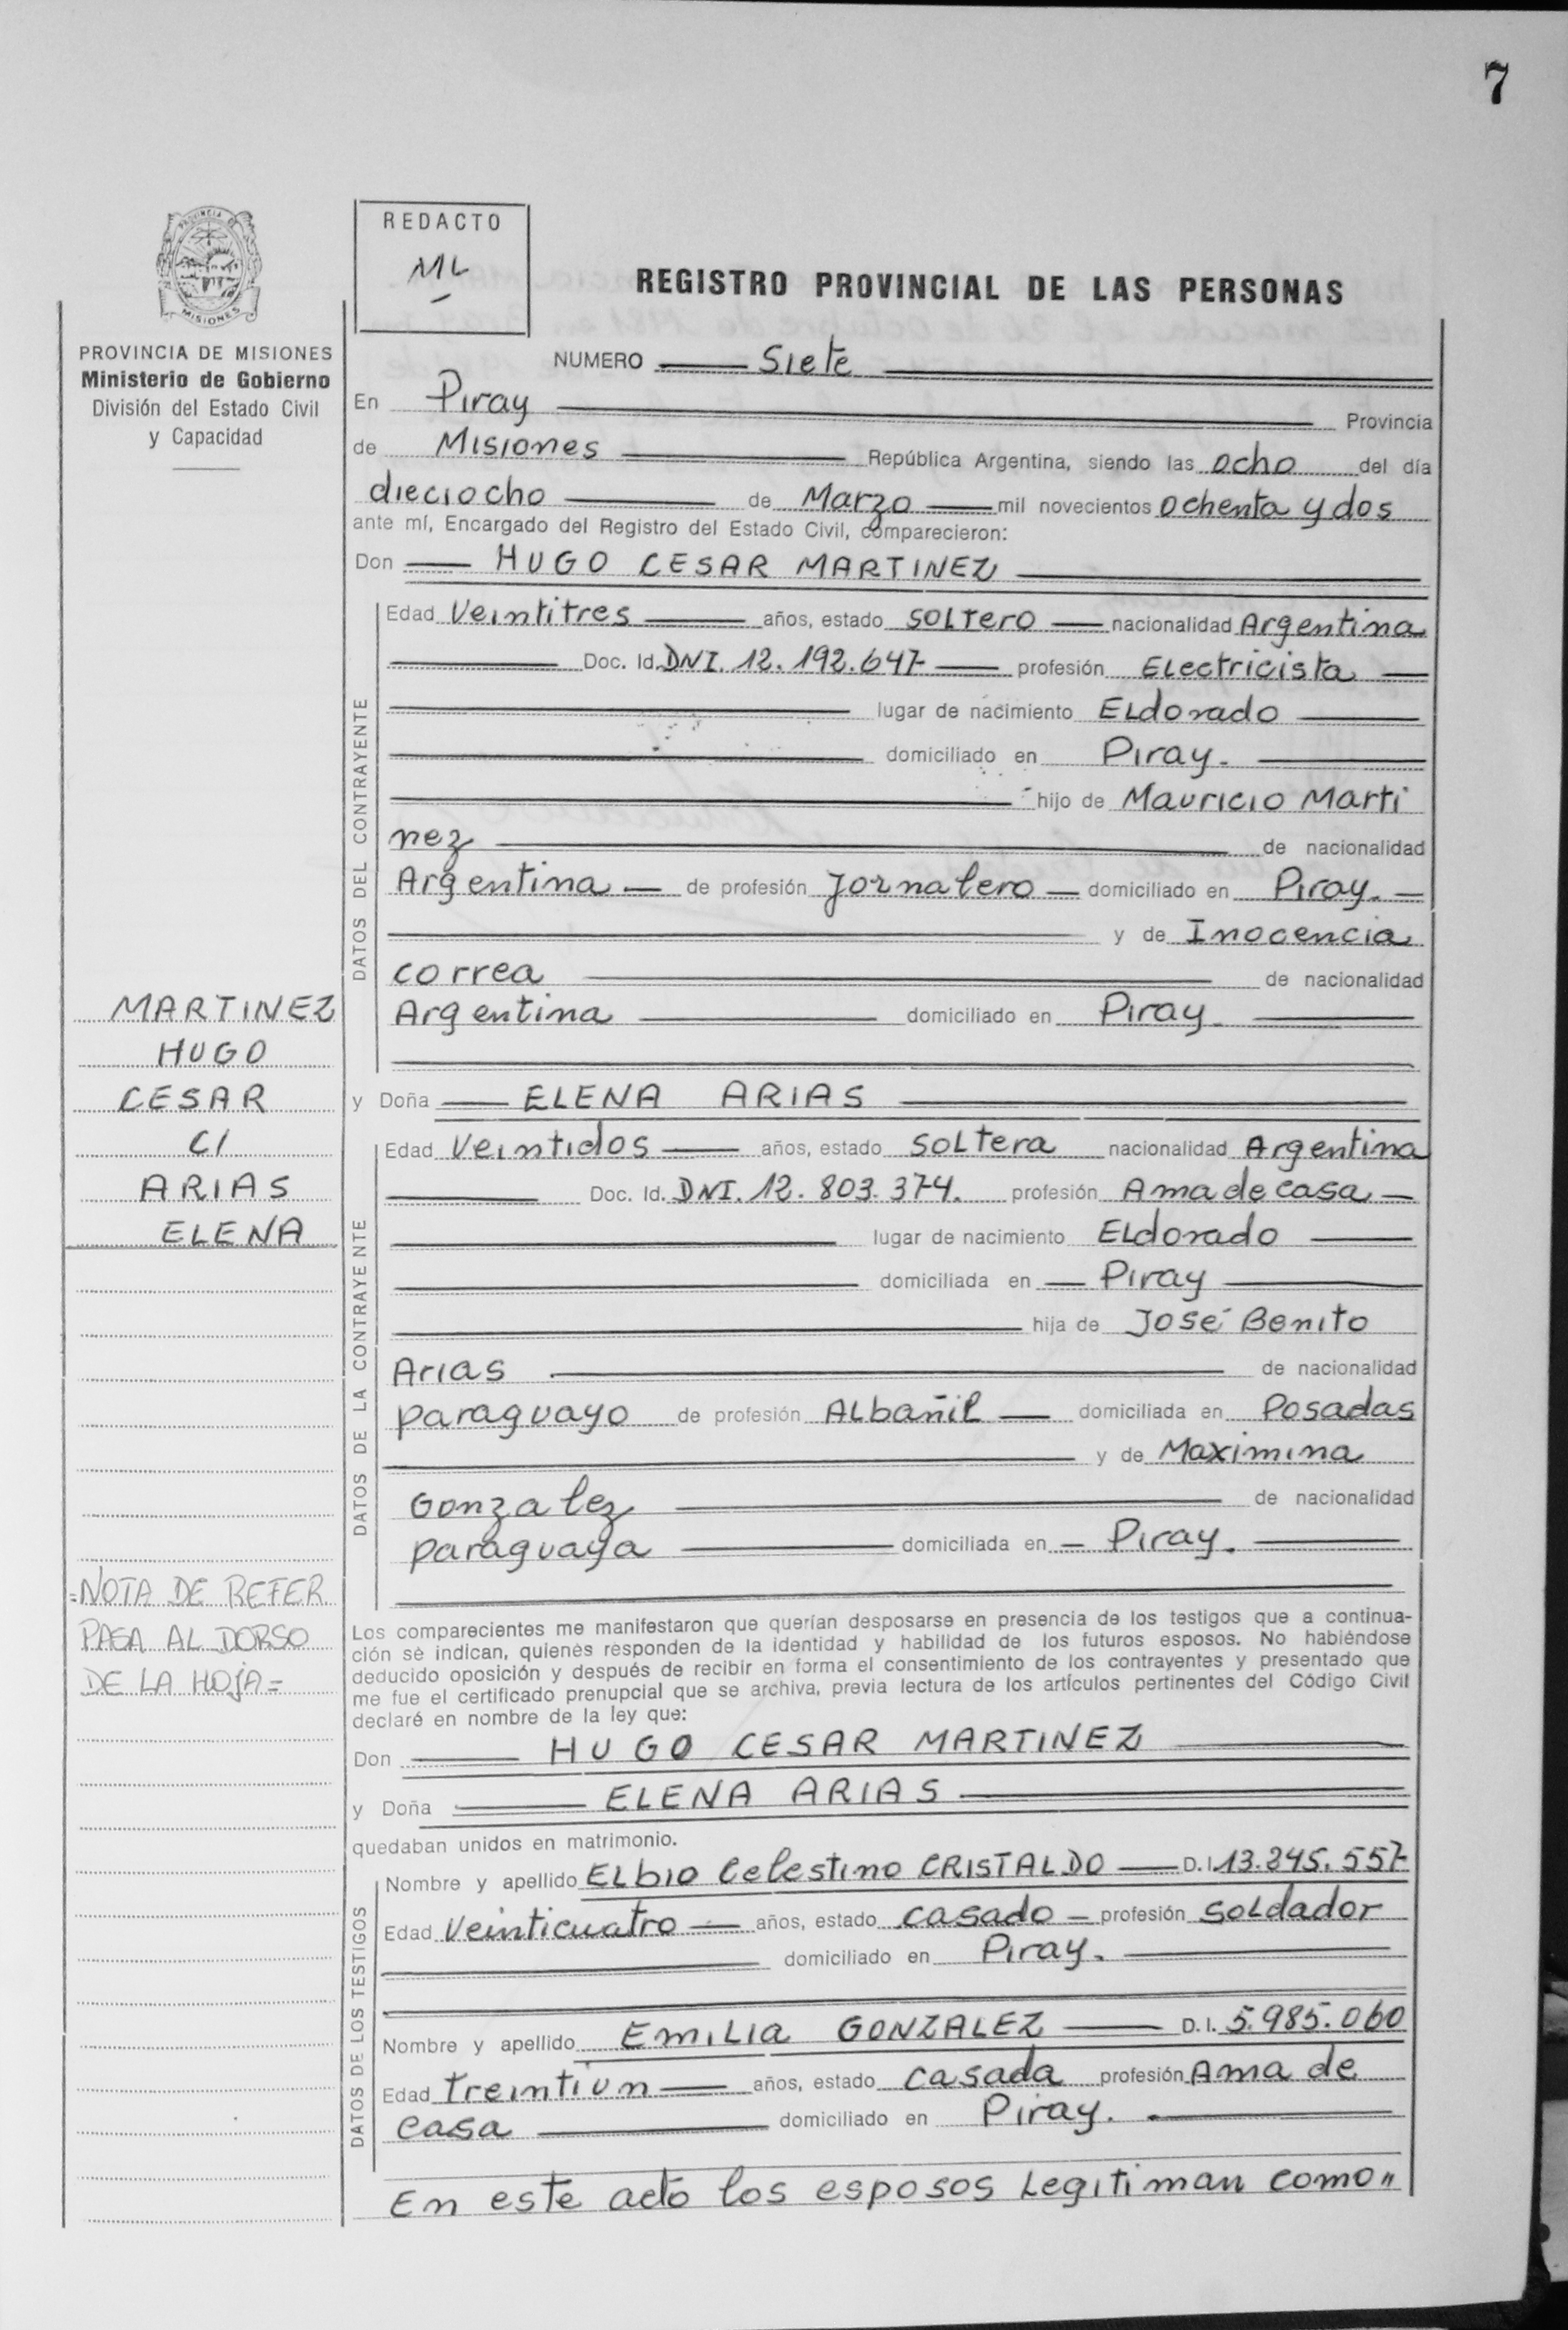 7
PROVINCIA DE
MISIONES
PROVINCIA DE MISIONES
Ministerio de Gobierno
División del Estado Civil
y Capacidad
REDACTO
ML
REGISTRO PROVINCIAL DE LAS PERSONAS
NUMERO Siete
En Piray Provincia
de Misiones República Argentina, siendo las ocho del día
dieciocho de Marzo mil novecientos ochenta y dos
ante mí, Encargado del Registro del Estado Civil, comparecieron:
Don HUGO CESAR MARTINEZ
DATOS DEL CONTRAYENTE
Edad Veintitres años, estado SOLTERO nacionalidad Argentina
Doc. Id. DNI. 12.192.647 profesión Electricista
lugar de nacimiento ELdorado
domiciliado en Piray.
hijo de Mauricio Marti
nez de nacionalidad
Argentina de profesión Jornalero domiciliado en Piray.
y de Inocencia
correa de nacionalidad
Argentina domiciliado en Piray
MARTINEZ
HUGO
CESAR
C/
ARIAS
ELENA
y Doña ELENA ARIAS
DATOS DE LA CONTRAYENTE
Edad Veintidos años, estado SOLtera nacionalidad Argentina
Doc. Id. DNI. 12.803.374. profesión Ama de casa
lugar de nacimiento ELdorado
domiciliada en Piray
hija de José Benito
Arias de nacionalidad
paraguayo de profesión ALbañil domiciliada en Posadas
y de Maximina
Gonzalez de nacionalidad
paraguaya domiciliada en Piray.
=NOTA DE REFER
PASA AL DORSO
DE LA HOJA=
Los comparecientes me manifestaron que querían desposarse en presencia de los testigos que a continua-
ción se indican, quienes responden de la identidad y habilidad de los futuros esposos. No habiéndose
deducido oposición y después de recibir en forma el consentimiento de los contrayentes y presentado que
me fue el certificado prenupcial que se archiva, previa lectura de los artículos pertinentes del Código Civil
declaré en nombre de la ley que:
Don HUGO CESAR MARTINEZ
y Doña ELENA ARIAS
quedaban unidos en matrimonio.
DATOS DE LOS TESTIGOS
Nombre y apellido ELbio Celestino CRISTALDO D.I. 13.245.557
Edad Veinticuatro años, estado casado profesión SOLdador
domiciliado en Piray.
Nombre y apellido EmiLia GONZALEZ D.I. 5.985.060
Edad Treintiun años, estado casada profesión Ama de
casa domiciliado en Piray.
En este acto los esposos Legitiman como"